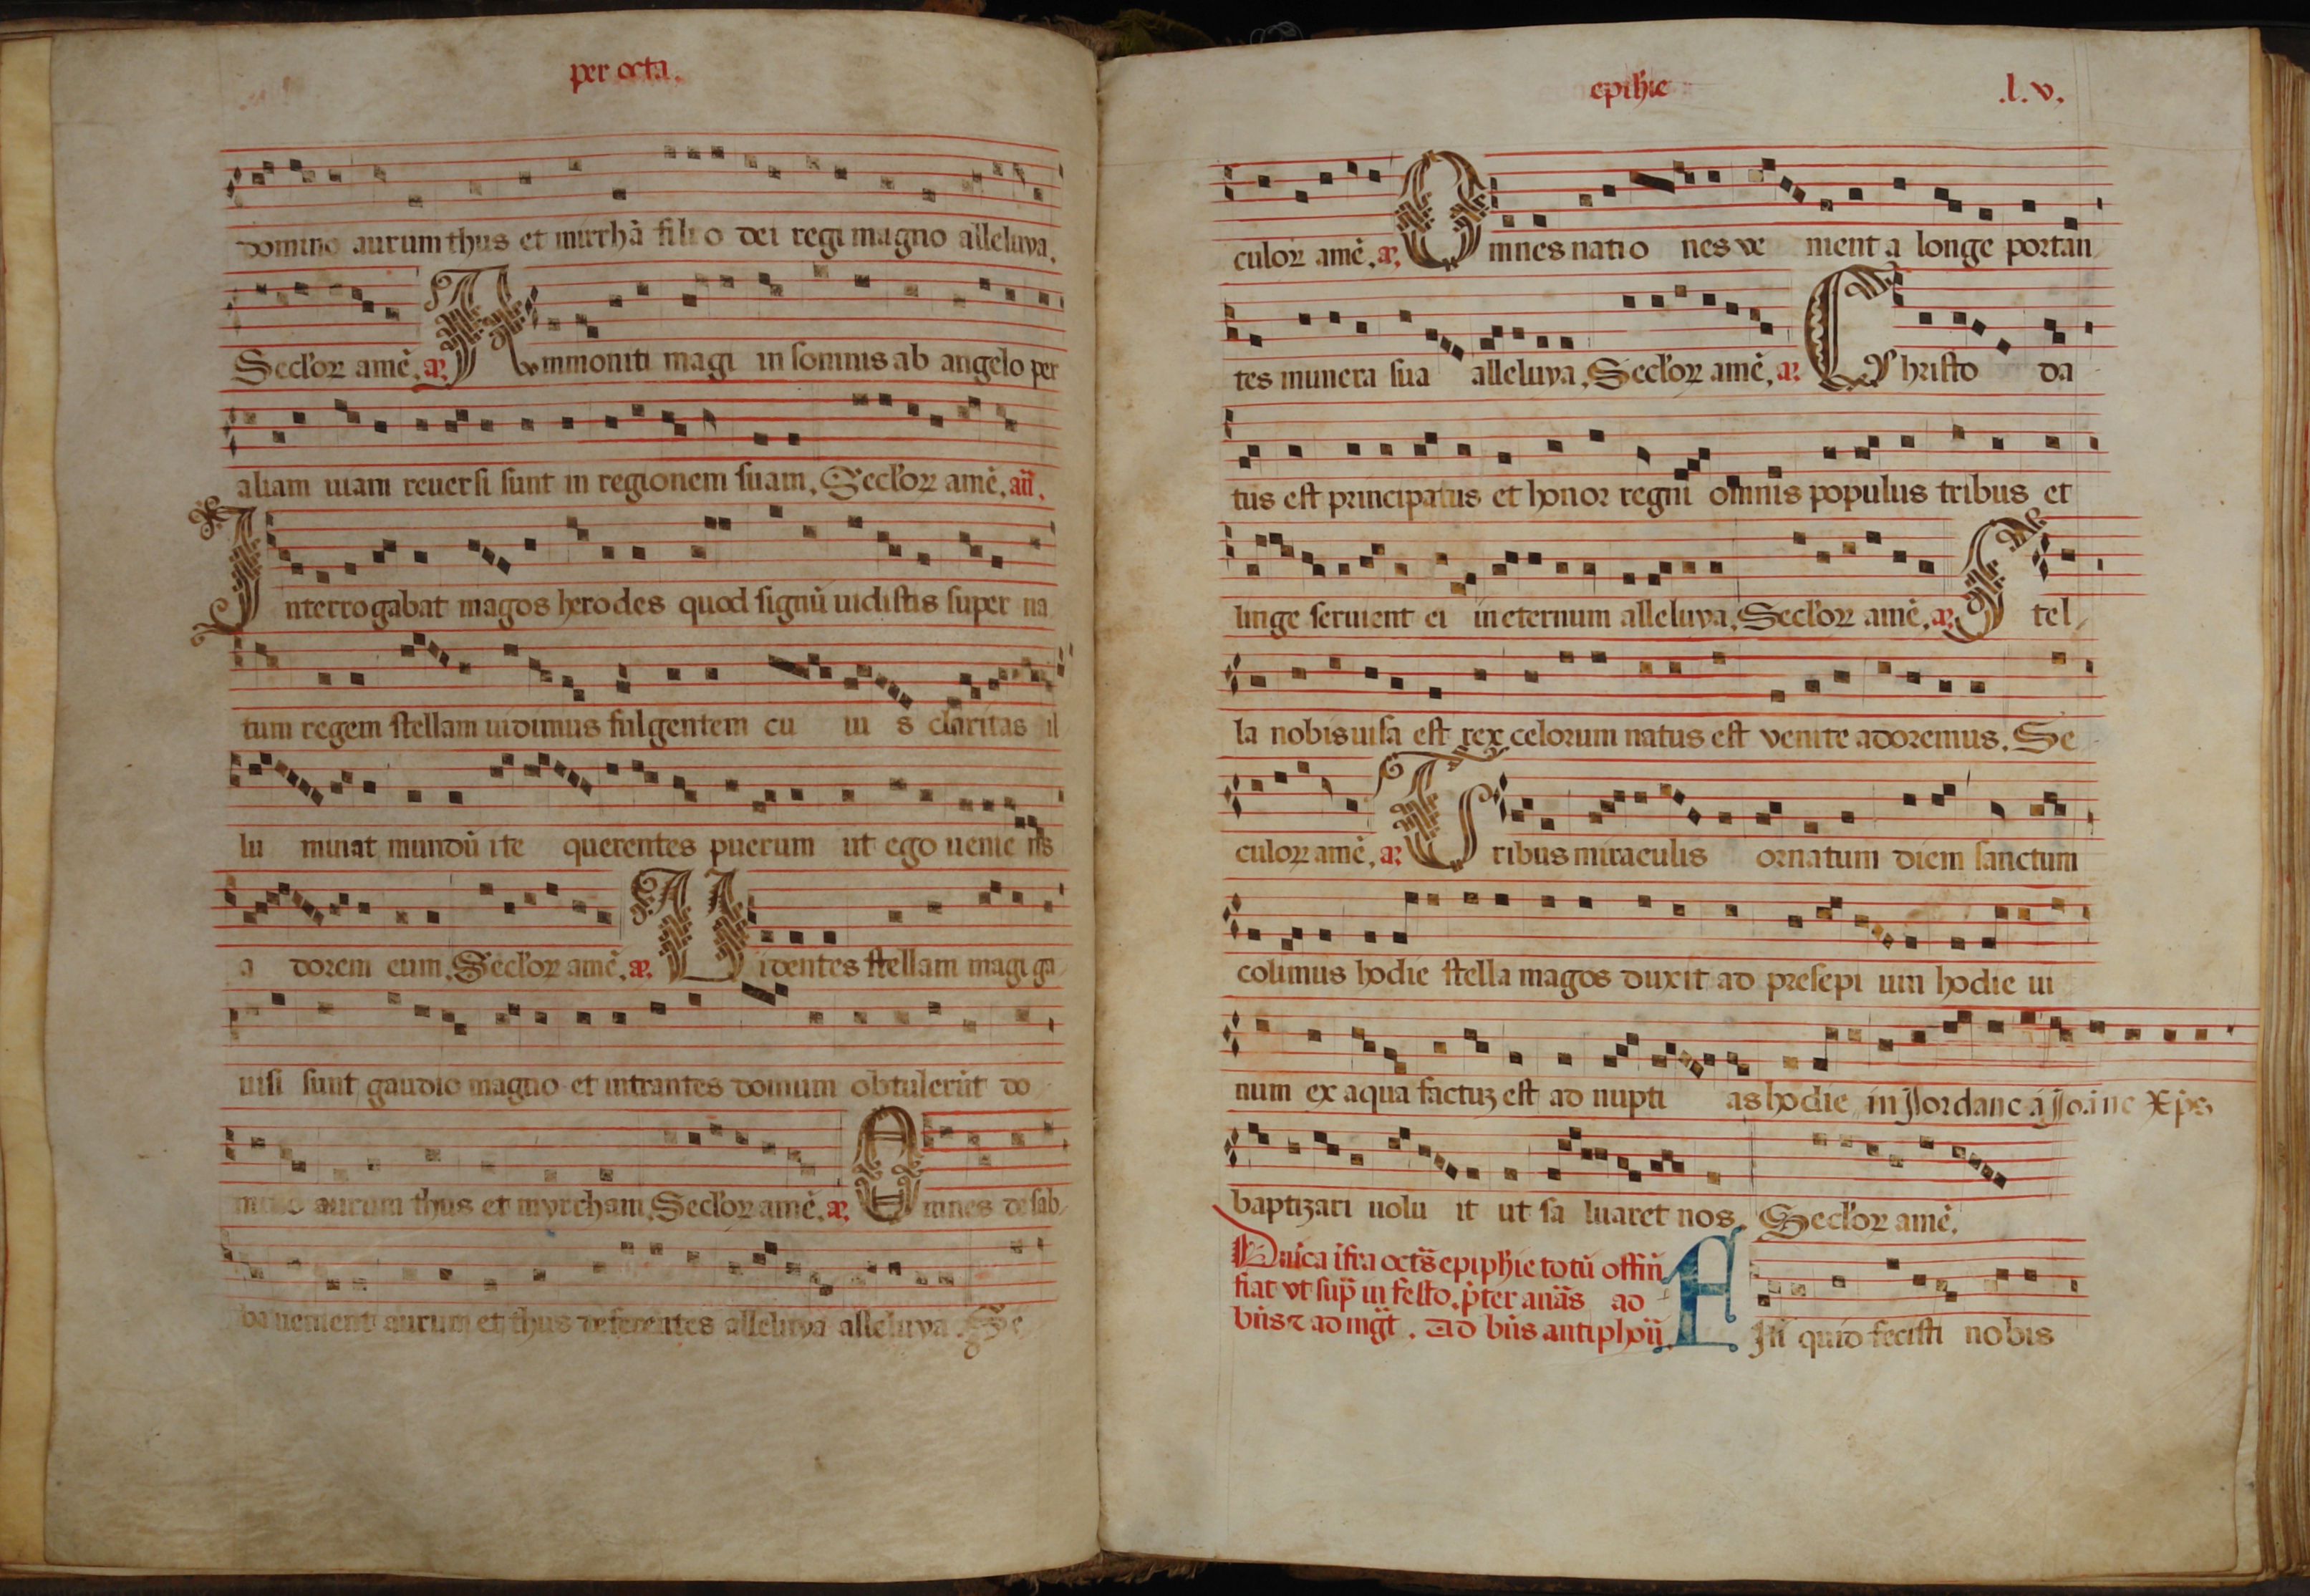 per octa.
domino aurum thus et mirrhā filio dei regi magno alleluya.
Seclʼoꝝ amē. añ. Ammoniti magi in somnis ab angelo per
aliam uiam reuersi sunt in regionem suam. Seclʼoꝝ amē. añ.
Interrogabat magos herodes quod signū uidistis super na
tum regem stellam uidimus fulgentem cu iu s claritas il
lu minat mundū ite querentes puerum ut ego ueniens
a dorem eum. Seclʼoꝝ amē. añ. Uidentes stellam magi ga
uisi sunt gaudio magno et intrantes domum obtulerūt do
mino aurum thus et myrrham. Seclʼoꝝ amē. añ. Omnes de sab
ba uenient aurum et thus deferentes alleluya alleluya. Se
epihie
.l.v.
culoꝝ amē. añ. Omnes natio nes ue nient a longe portan
tes munera sua alleluya. Seclʼoꝝ amē. añ. Christo da
tus est principatus et honor regni omnis populus tribus et
linge seruient ei in eternum alleluya. Seclʼoꝝ amē. añ. Stel
la nobis uisa est rex celorum natus est venite adoremus. Se
culoꝝ amē. añ. Tribus miraculis ornatum diem sanctum
colimus hodie stella magos duxit ad presepi um hodie ui
num ex aqua factuꝫ est ad nupti as hodie in Jordane a Joāne Xp̄s
baptizari uolu it ut sa luaret nos. Seclʼoꝝ amē.
Dnīca ifra octs̄ epiphie totū offiñ
fiat vt sup̄ in festo. p̄ter anās ad
bn̄s ⁊ ad mgt̄. Ad bn̄s antiphoñ
Fili quid fecisti nobis